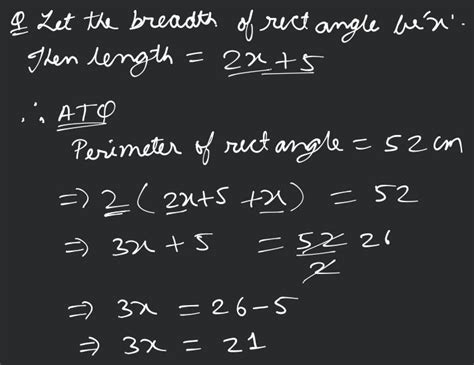 Q Let the breadth of rectangle be 'x'.
Then length = 2x+5
∴ ATQ
Perimeter of rectangle = 52 cm
⇒ 2 ( 2x+5 +x) = 52
⇒ 3x + 5 = 52/2 26
⇒ 3x = 26-5
⇒ 3x = 21